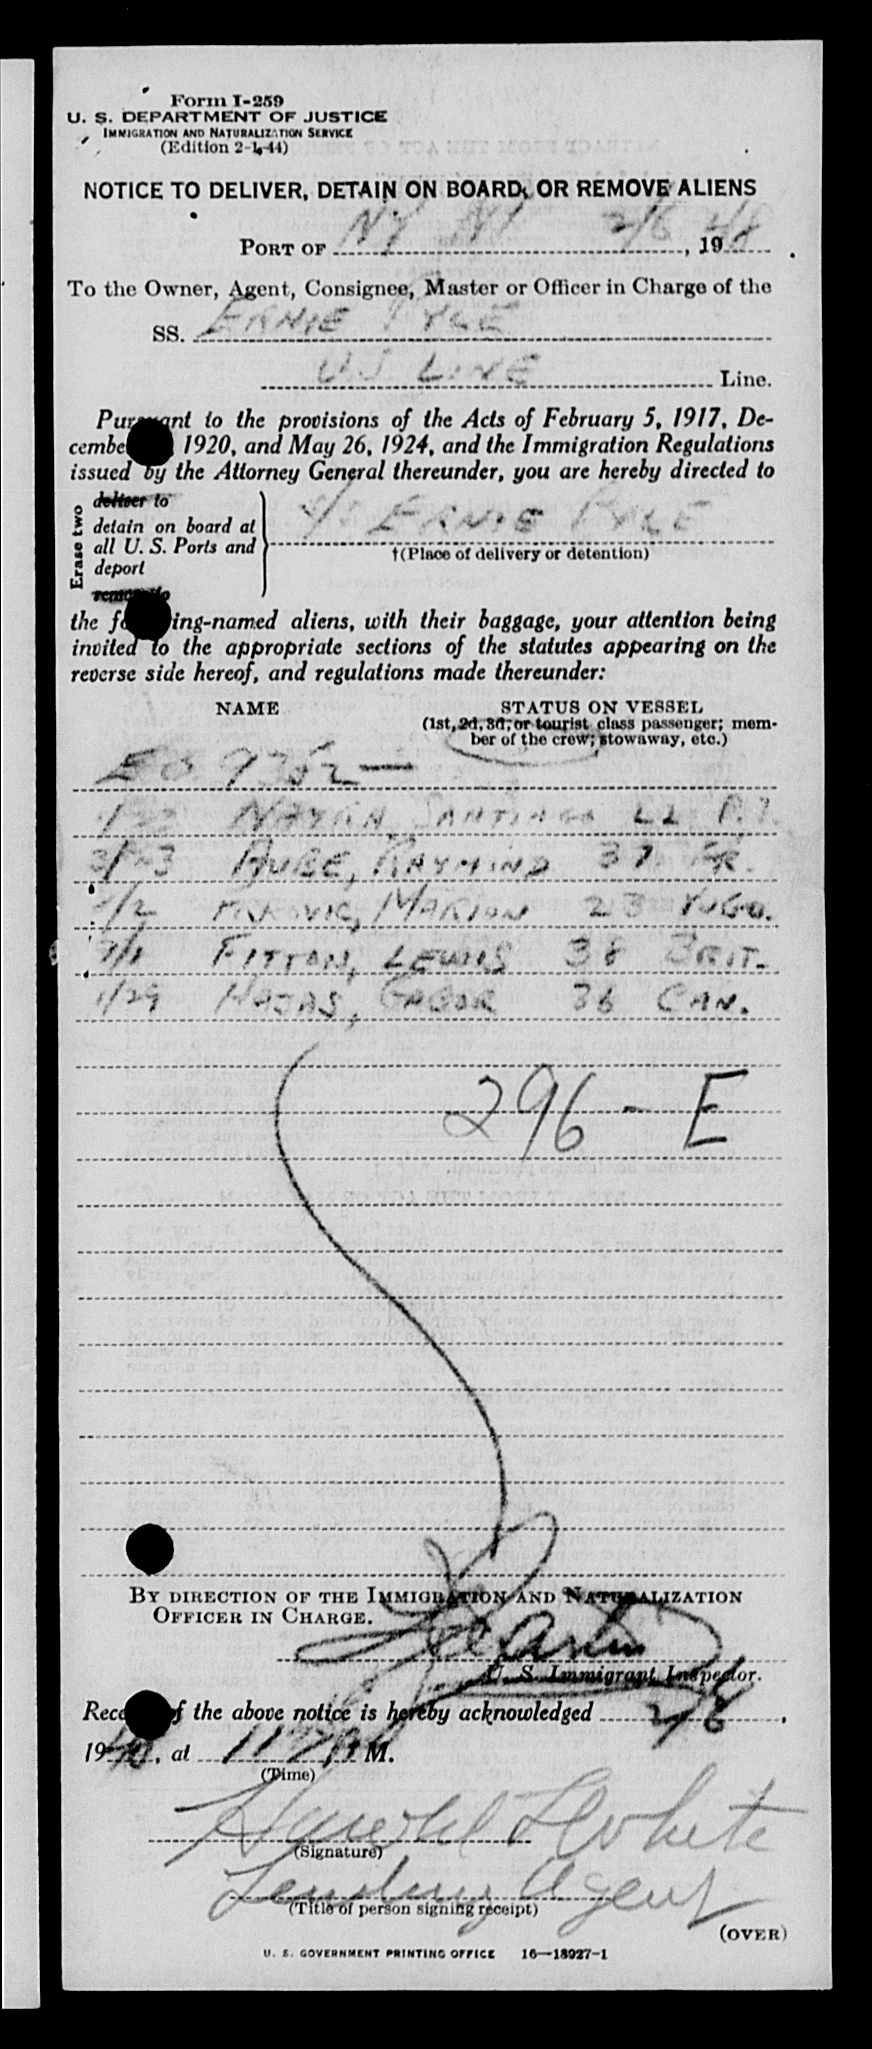 Form I-259
U. S. DEPARTMENT OF JUSTICE
IMMIGRATION AND NATURALIZATION SERVICE
(Edition 2-1-44)
NOTICE TO DELIVER, DETAIN ON BOARD, OR REMOVE ALIENS
PORT OF NY NY 2/6, 1948
To the Owner, Agent, Consignee, Master or Officer in Charge of the
SS. ERNIE PYLE
US LINE Line.
Pursuant to the provisions of the Acts of February 5, 1917, De-
cember 1920, and May 26, 1924, and the Immigration Regulations
issued by the Attorney General thereunder, you are hereby directed to
Erase two
deliver to
detain on board at
all U. S. Ports and
deport
remove to
S/S ERNIE PYLE
†(Place of delivery or detention)
the following-named aliens, with their baggage, your attention being
invited to the appropriate sections of the statutes appearing on the
reverse side hereof, and regulations made thereunder:
NAME STATUS ON VESSEL
(1st, 2d, 3d, or tourist class passenger; mem-
ber of the crew; stowaway, etc.)
EO 9352—
SANTIAGO 22 P.I.
AUBE, RAYMOND 37 FR.
MARION 23 YUGO.
FITTON, LEWIS 38 BRIT.
1/29 HOJAS, GABOR 36 CAN.
296 - E
BY DIRECTION OF THE IMMIGRATION AND NATURALIZATION
OFFICER IN CHARGE.
U. S. Immigrant Inspector.
Receipt of the above notice is hereby acknowledged 2/8,
1948, at M.
(Time)
Harold White
(Signature)
Landing Agent
(Title of person signing receipt)
(OVER)
U. S. GOVERNMENT PRINTING OFFICE 16—18927-1